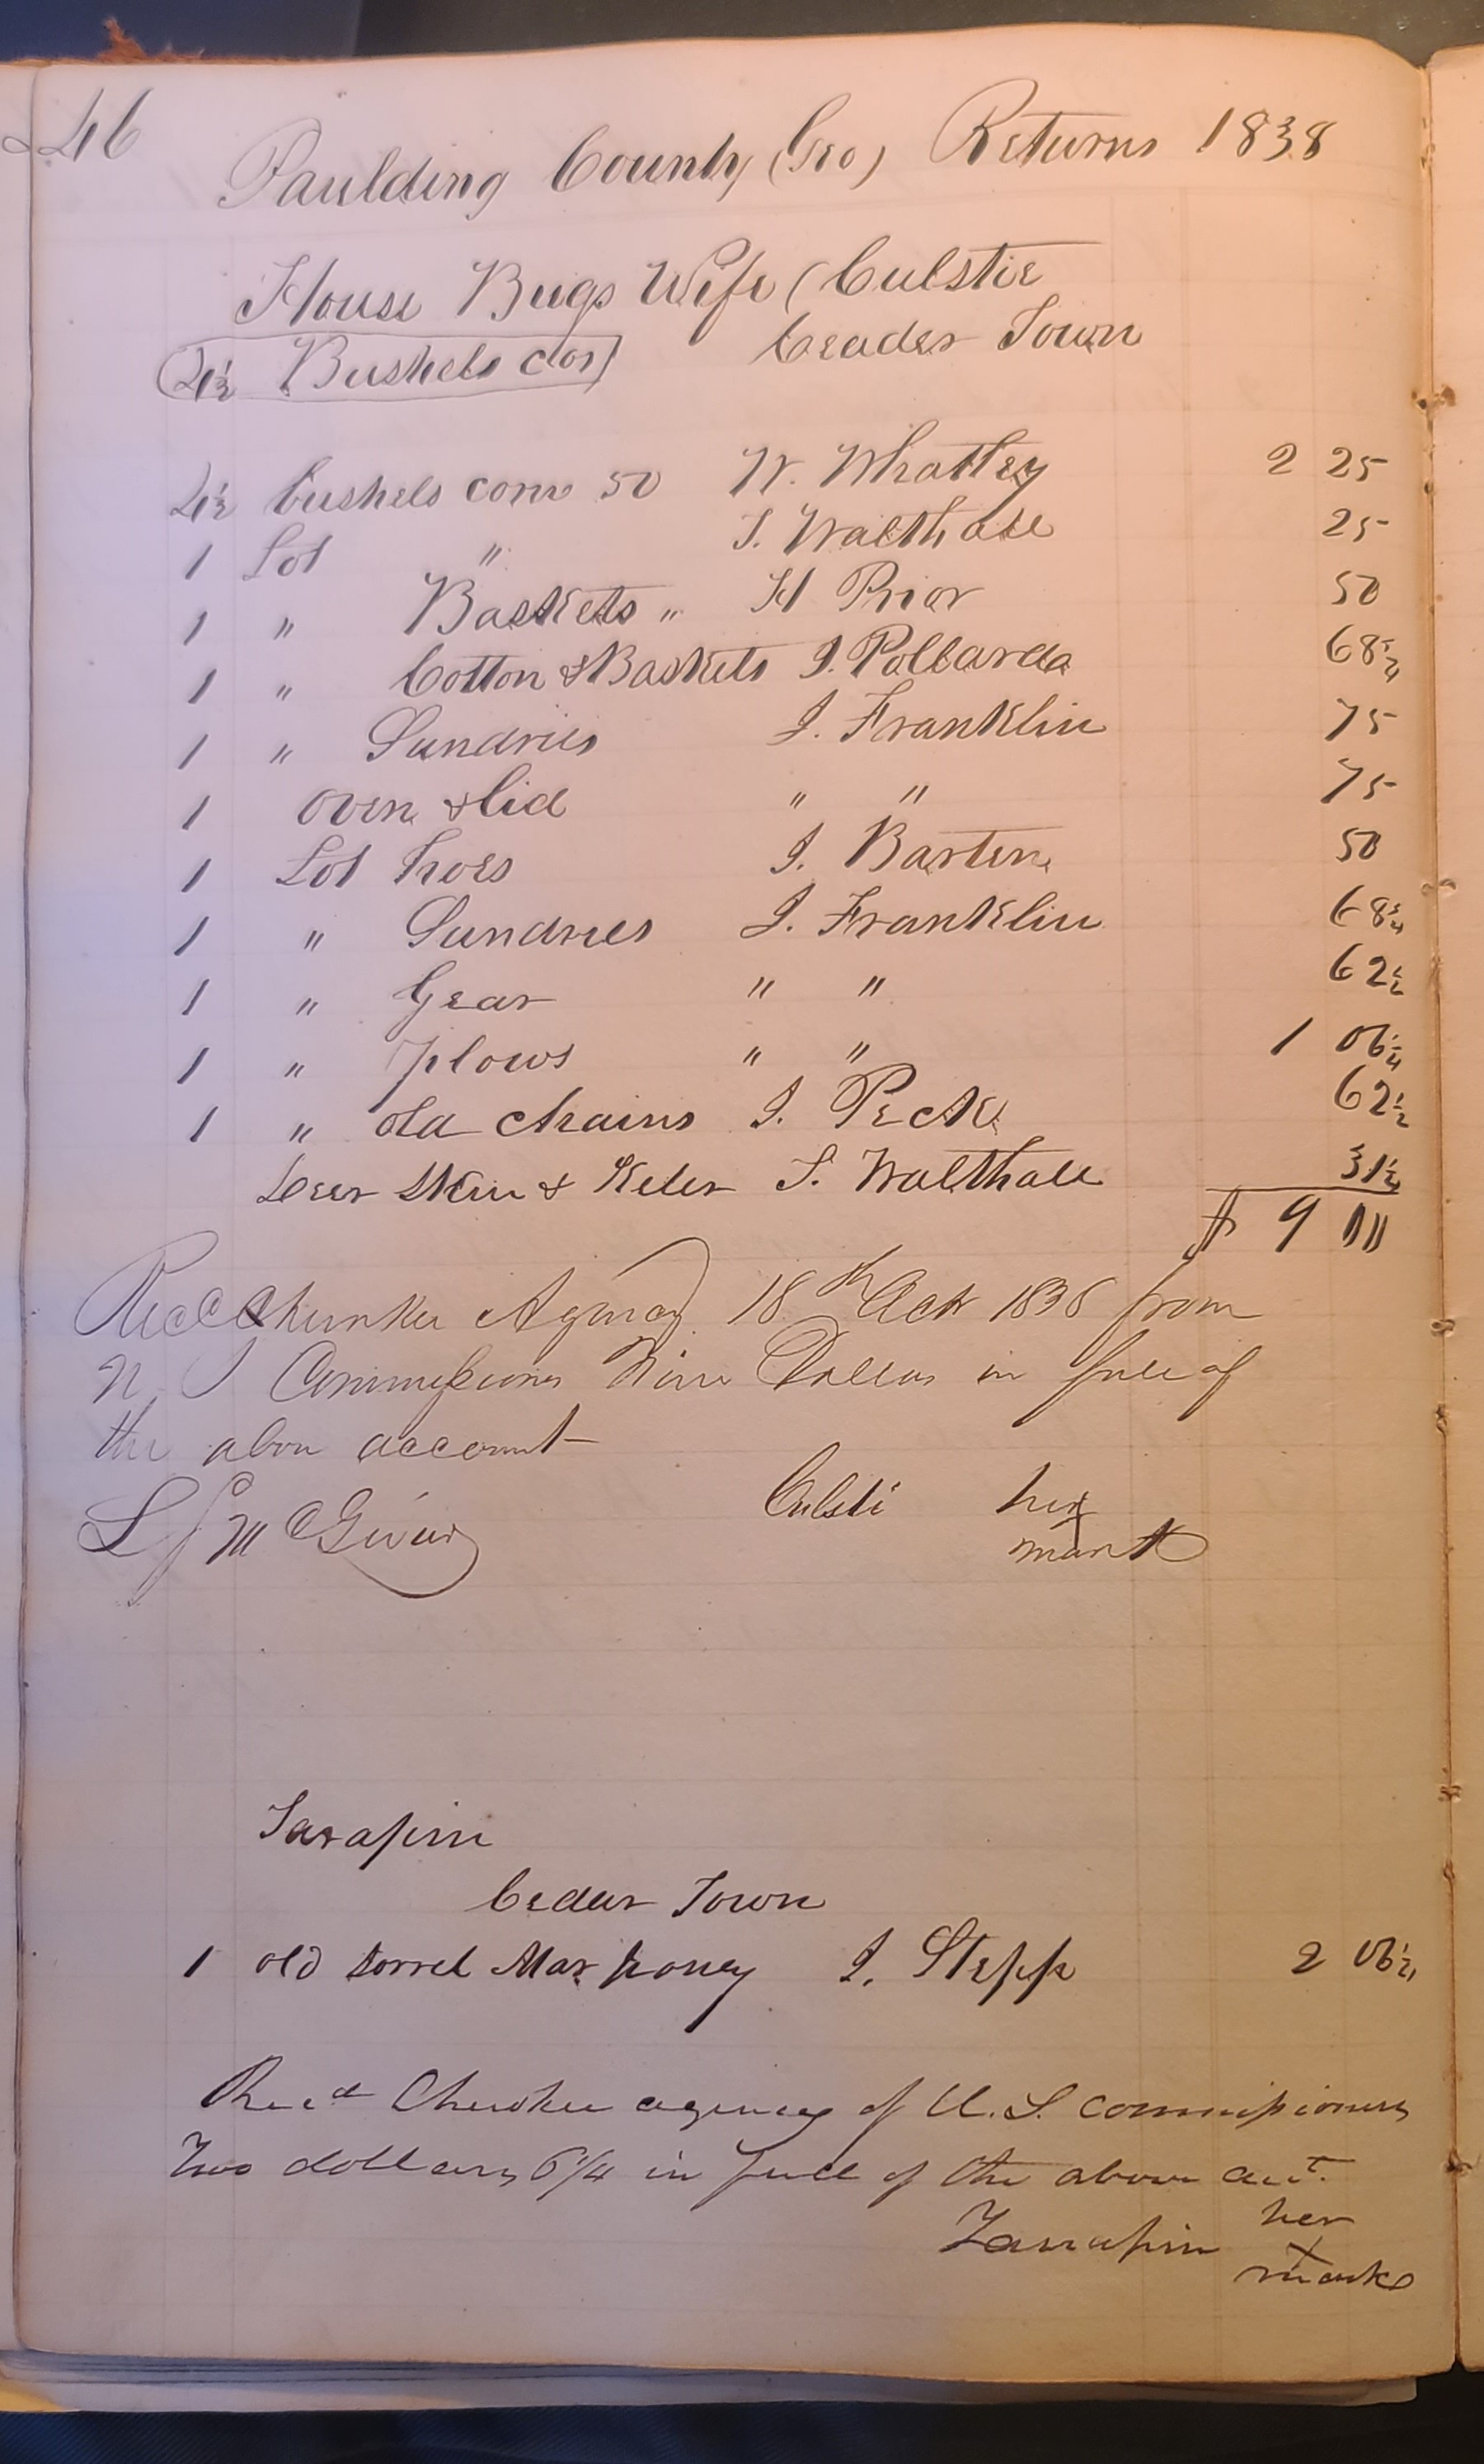 46
Paulding County (Geo) Returns 1838
House Bugs Wife (Culstie
Ceader Town
4½ Bushels cor
4½ bushels corn 50 W. Whatley 2 25
1 Lot " T. Walthall 25
1 " Baskets " H Prior 50
1 " Cotton & Baskets J. Pollard 68¾
1 " Sundries J. Franklin 75
1 oven & lid " " 75
1 Lot hoes J. Barten 50
1 " Sundries J. Franklin 68¾
1 " Gear " " 62½
1 " plows " " 1 06¼
1 " old chains J. Peck 62½
Deer Skin & T. Walthall 31¼
$ 9 00
Recd Agency 18th 1838 from
Commissioners Nine Dollars in full of
the above account
Culsti her
x
mark
Tarapin
Cedar Town
1 old sorrel Mar poney J. Stepp 2 06¼
Recd Cherokee agency of U.S. Commissioners
Two dollars 6¼ in full of the above act.
Tarrapin her
x
mark